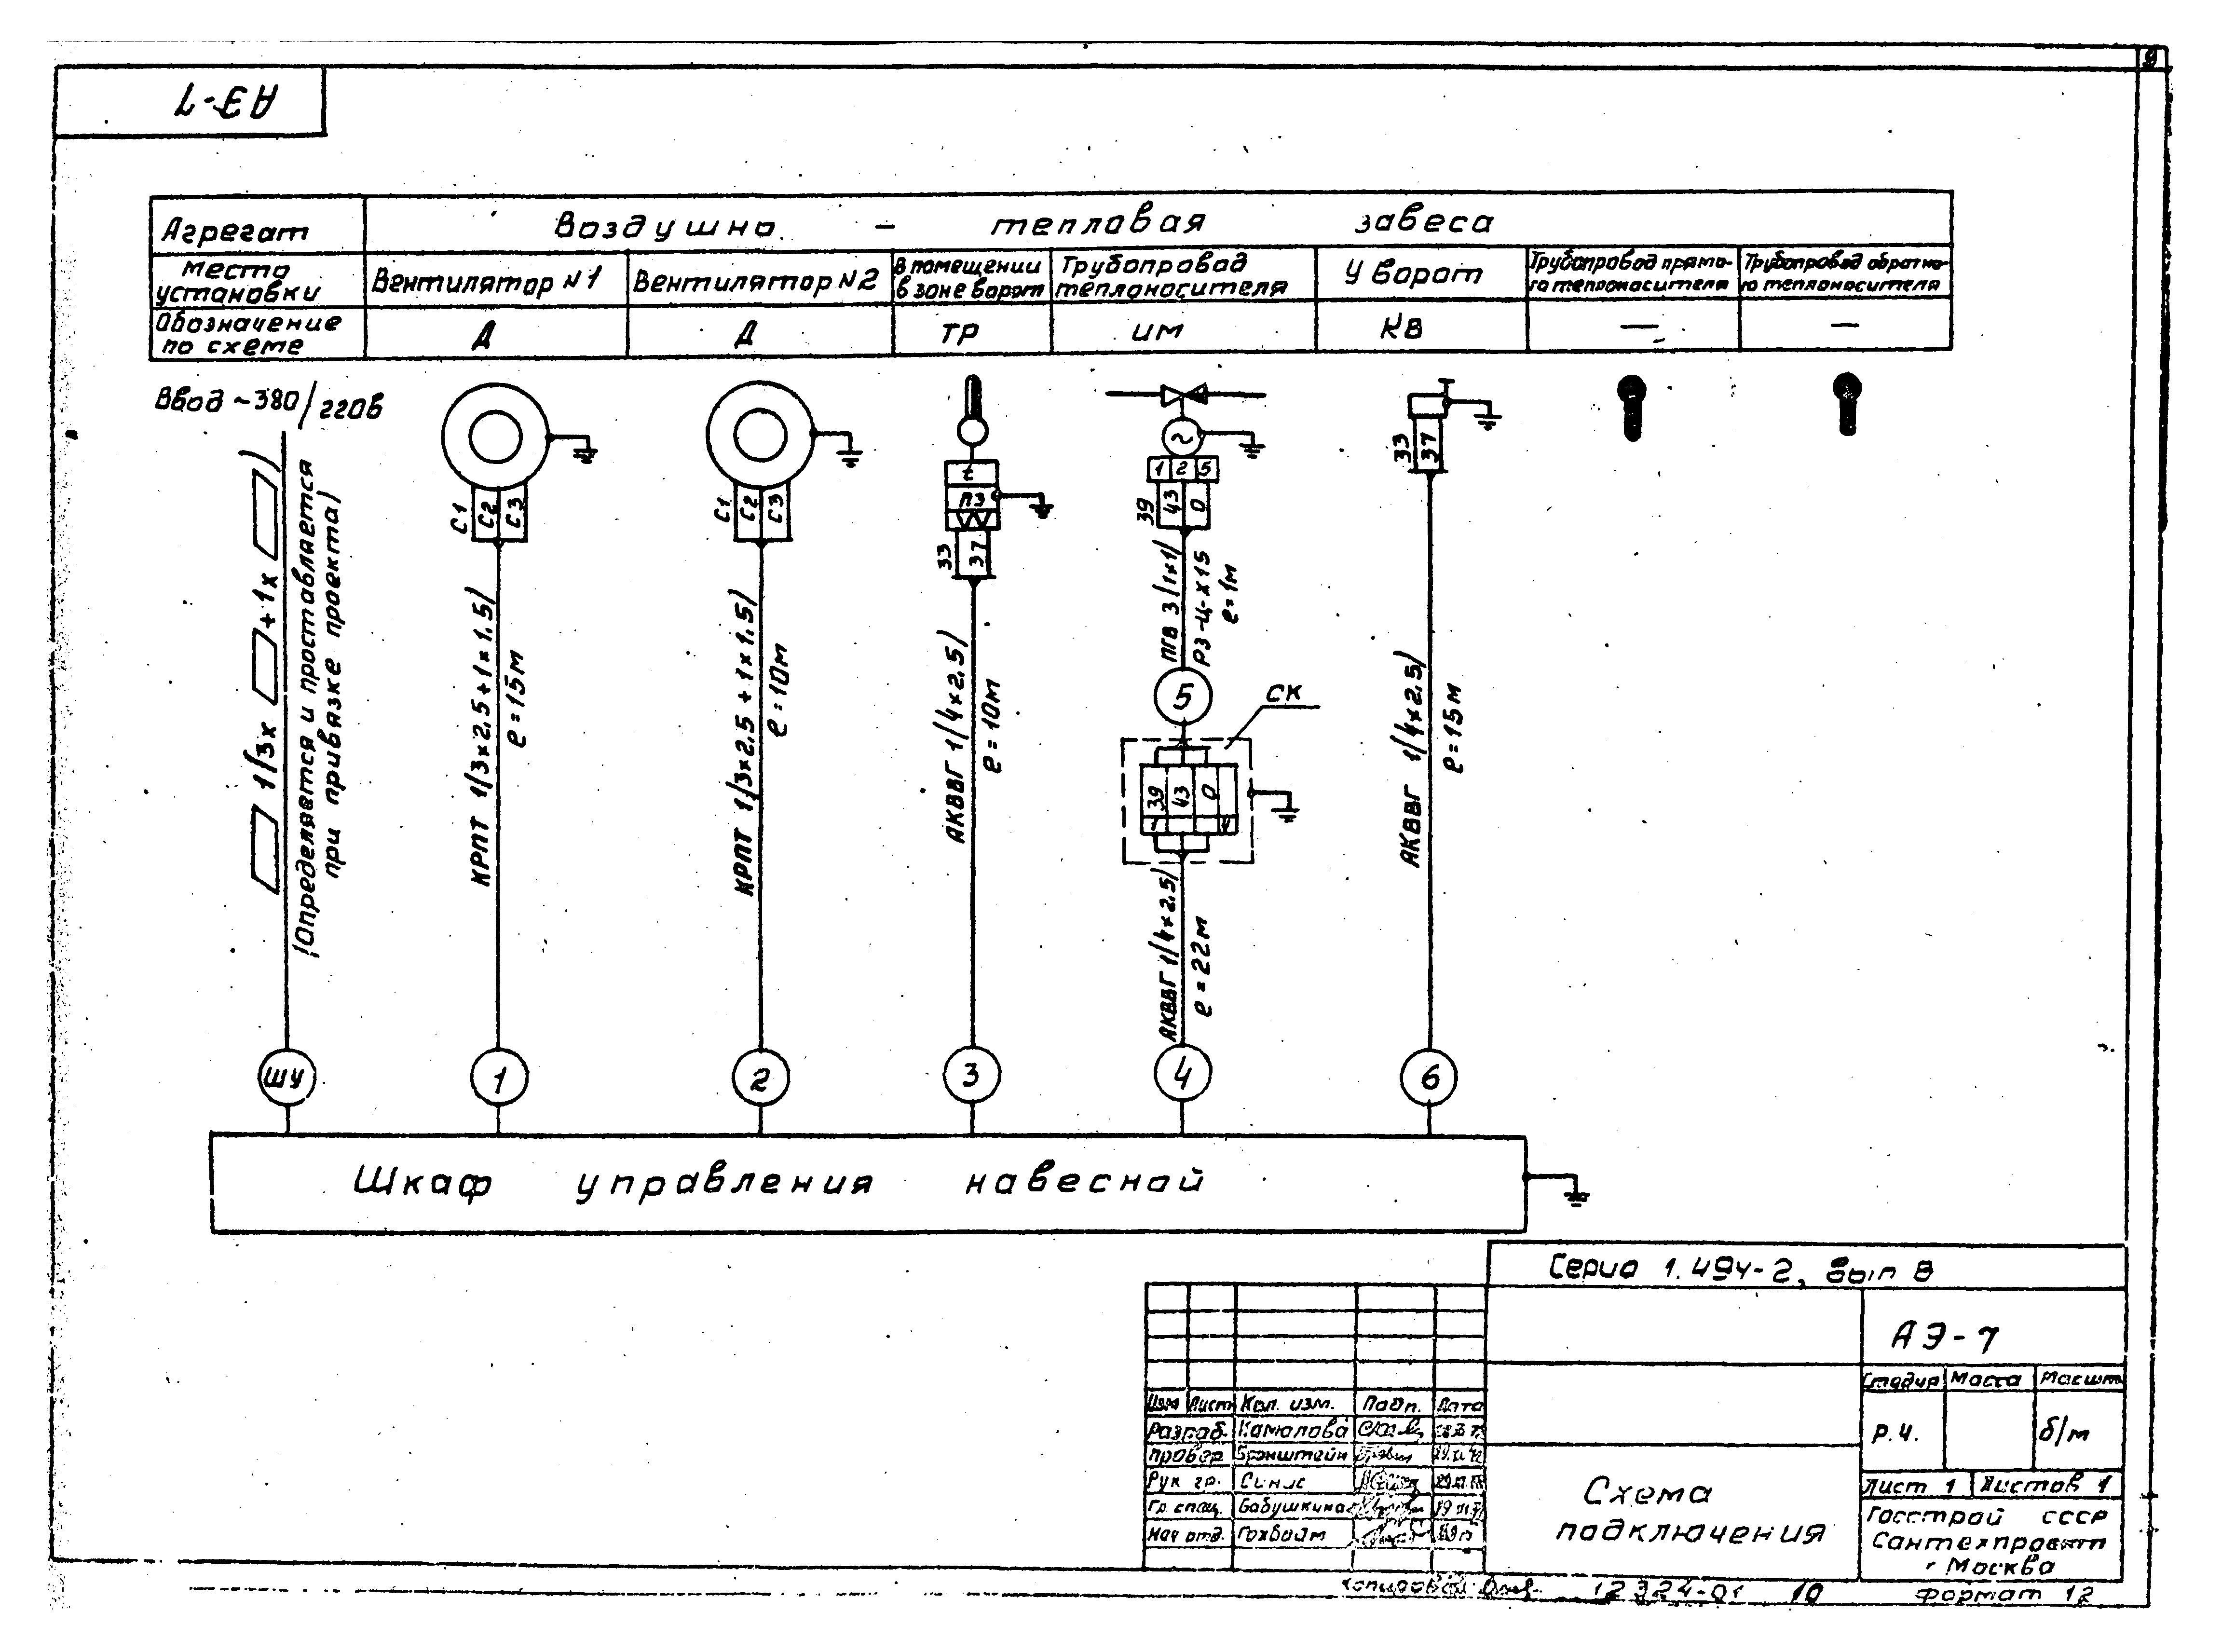 9
АЭ-7
Агрегат
Воздушно - тепловая завеса
Место установки
Вентилятор N1
Вентилятор N2
В помещении
в зоне ворот
Трубопровод
теплоносителя
У ворот
Трубопровод прямо-
го теплоносителя
Трубопровод обратно-
го теплоносителя
Обозначение
по схеме
Д
Д
ТР
ИМ
КВ
—
—
Ввод ~380/220в
1/3х +1х )
/Определяется и проставляется
при привязке проекта/
С1 С2 С3
КРПТ 1/3х2,5+1х1,5/
ℓ=15м
С1 С2 С3
КРПТ 1/3х2,5+1х1,5/
ℓ=10м
t
ПЭ
33 37
АКВВГ 1/4х2,5/
ℓ=10м
~
1 2 5
39 43 0
ПГВ 3/1х1/
РЗ-Ц-Х15
ℓ=1м
5
СК
39 43 0
1 4
АКВВГ 1/4х2,5/
ℓ=22м
33 37
АКВВГ 1/4х2,5/
ℓ=15м
ШУ
1
2
3
4
6
Шкаф управления навесной
Серия 1.494-2, вып 8
АЭ-7
Стадия Масса Масшт
Р.Ч. б/м
Лист 1 Листов 1
Изм Лист Кол. изм. Подп. Дата
Разраб. Камалова
Провер Бронштейн
Рук гр. Синис
Гл. спец. Бабушкина
Нач отд.
Схема
подключения
Госстрой СССР
Сантехпроект
г Москва
Копировал
12324-01 10
Формат 12